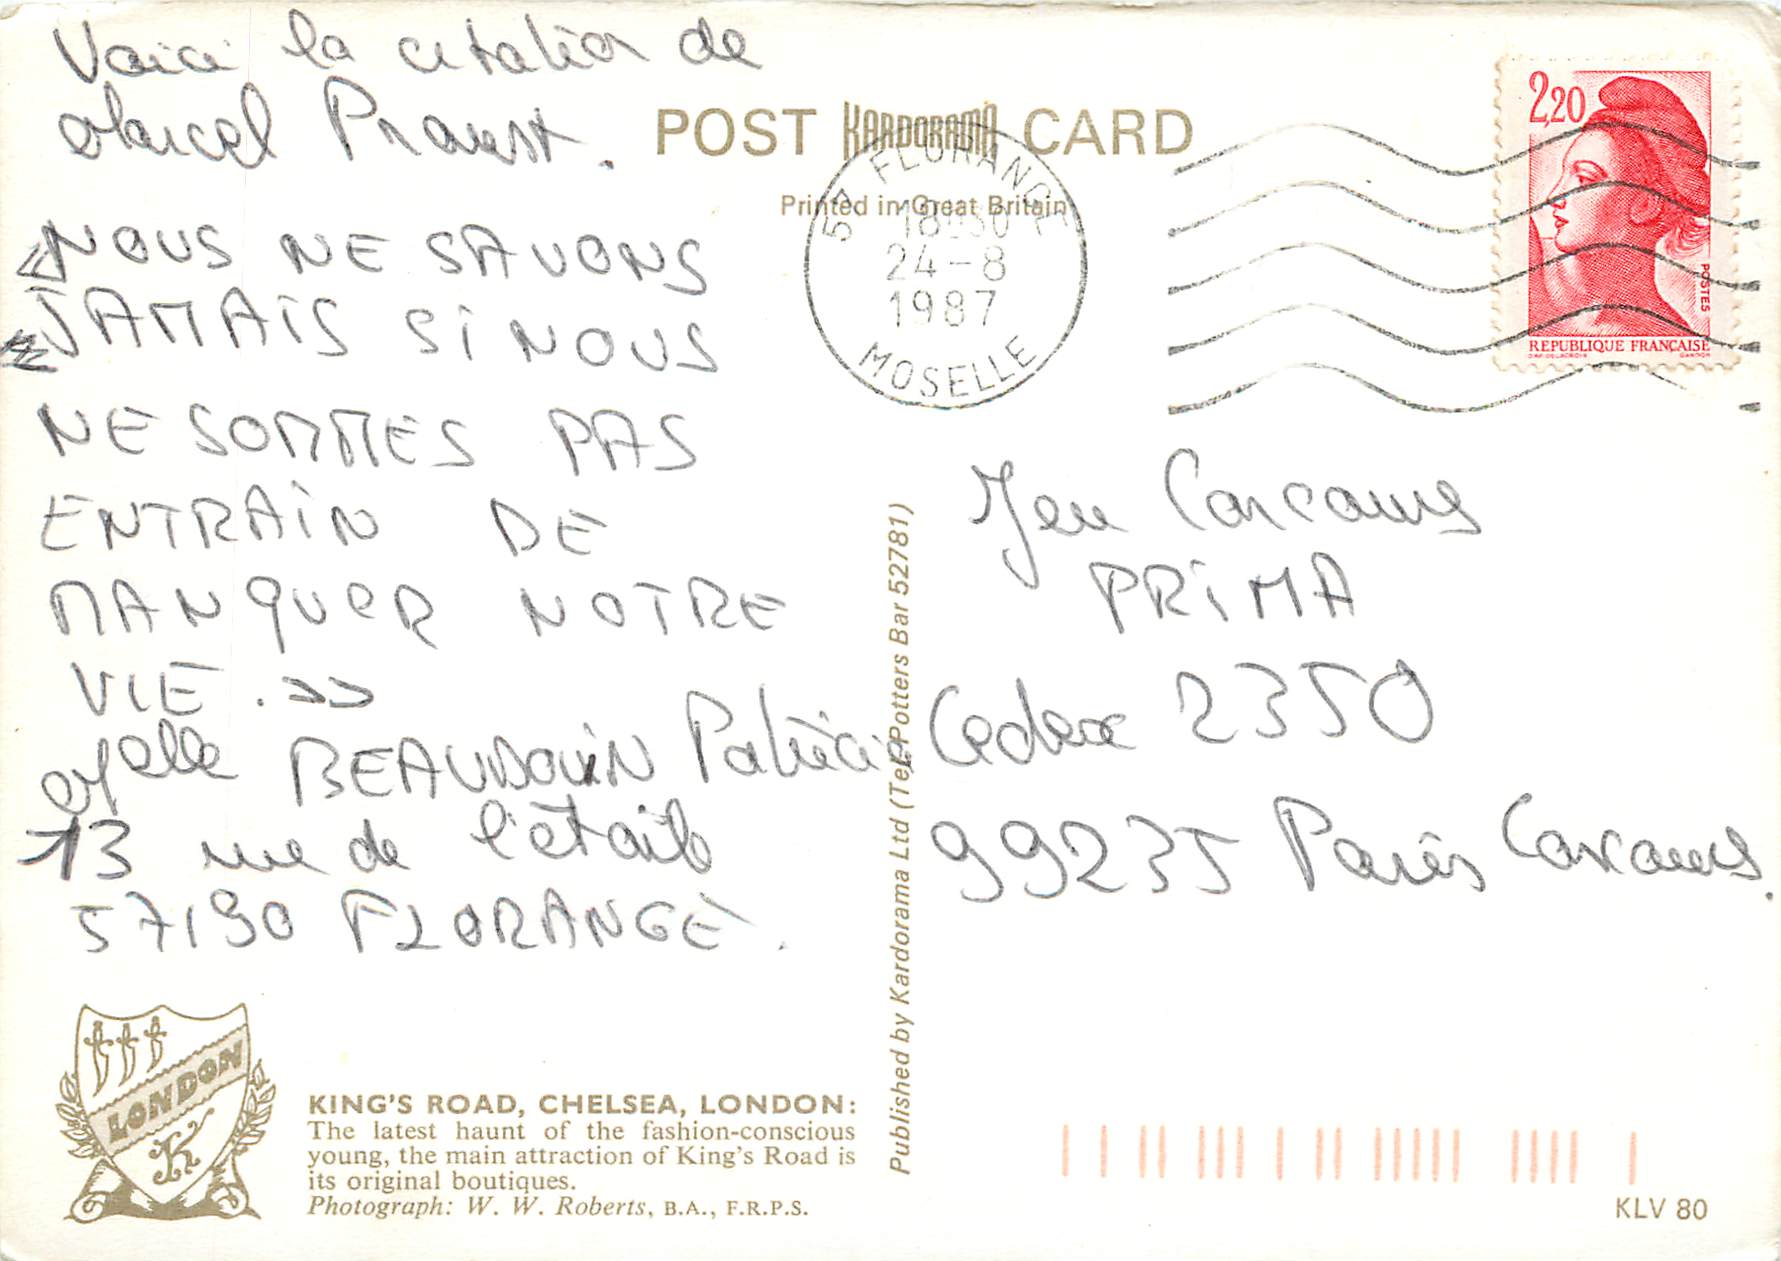 Voici la citation de
Marcel Proust.
«NOUS NE SAVONS
JAMAIS SI NOUS
NE SOMMES PAS
ENTRAIN DE
MANQUER NOTRE
VIE.»
Melle BEAUDOUIN Patricia
13 rue de l'étoile
57190 FLORANGE.
POST KARDORAMA CARD
Printed in Great Britain
57 FLORANGE
18H30
24-8
1987
MOSELLE
2,20
POSTES
REPUBLIQUE FRANÇAISE
D'AP. DELACROIX GANDON
Jeu Concours
PRIMA
Cedex 2350
99235 Paris Concours.
Published by Kardorama Ltd (Tel. Potters Bar 52781)
LONDON
K
KING'S ROAD, CHELSEA, LONDON:
The latest haunt of the fashion-conscious
young, the main attraction of King's Road is
its original boutiques.
Photograph: W. W. Roberts, B.A., F.R.P.S.
KLV 80